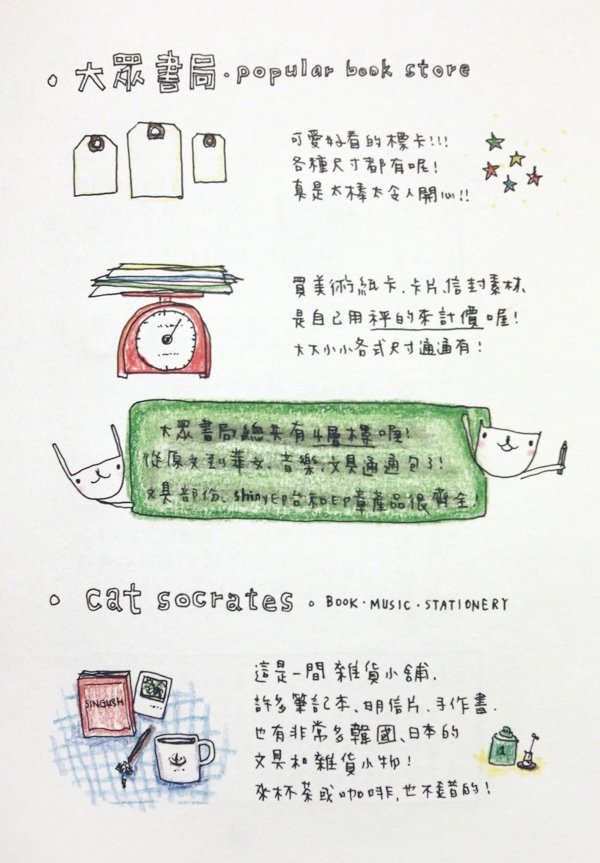 大眾書局·popular book store
可愛好看的標卡!!!
各種尺寸都有喔!
真是太棒太令人開心!!
買美術紙卡、卡片、信封素材、
是自己用秤的來計價喔!
大大小小各式尺寸通通有!
大眾書局總共有4層樓喔!
從原文到華文、音樂,文具通通包了!
文具部份、shinyEP台和EP章產品很齊全!
cat socrates。BOOK·MUSIC·STATIONERY
這是一間雜貨小舖.
許多筆記本、明信片、手作書.
SINGLISH
也有非常多韓國、日本的
文具和雜貨小物!
來杯茶或咖啡,也不錯的!